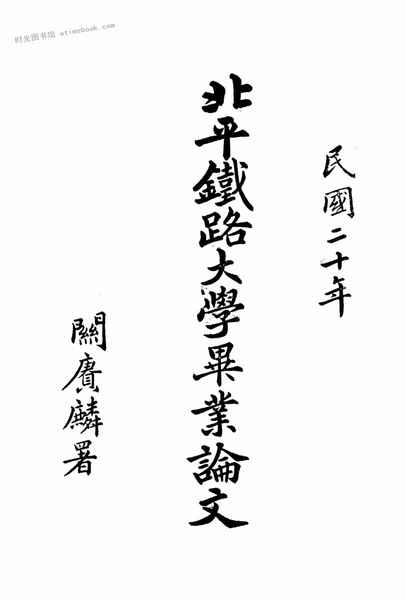 时光图书馆 etimebook.com
民國二十年
北平鐵路大學畢業論文
關賡麟署